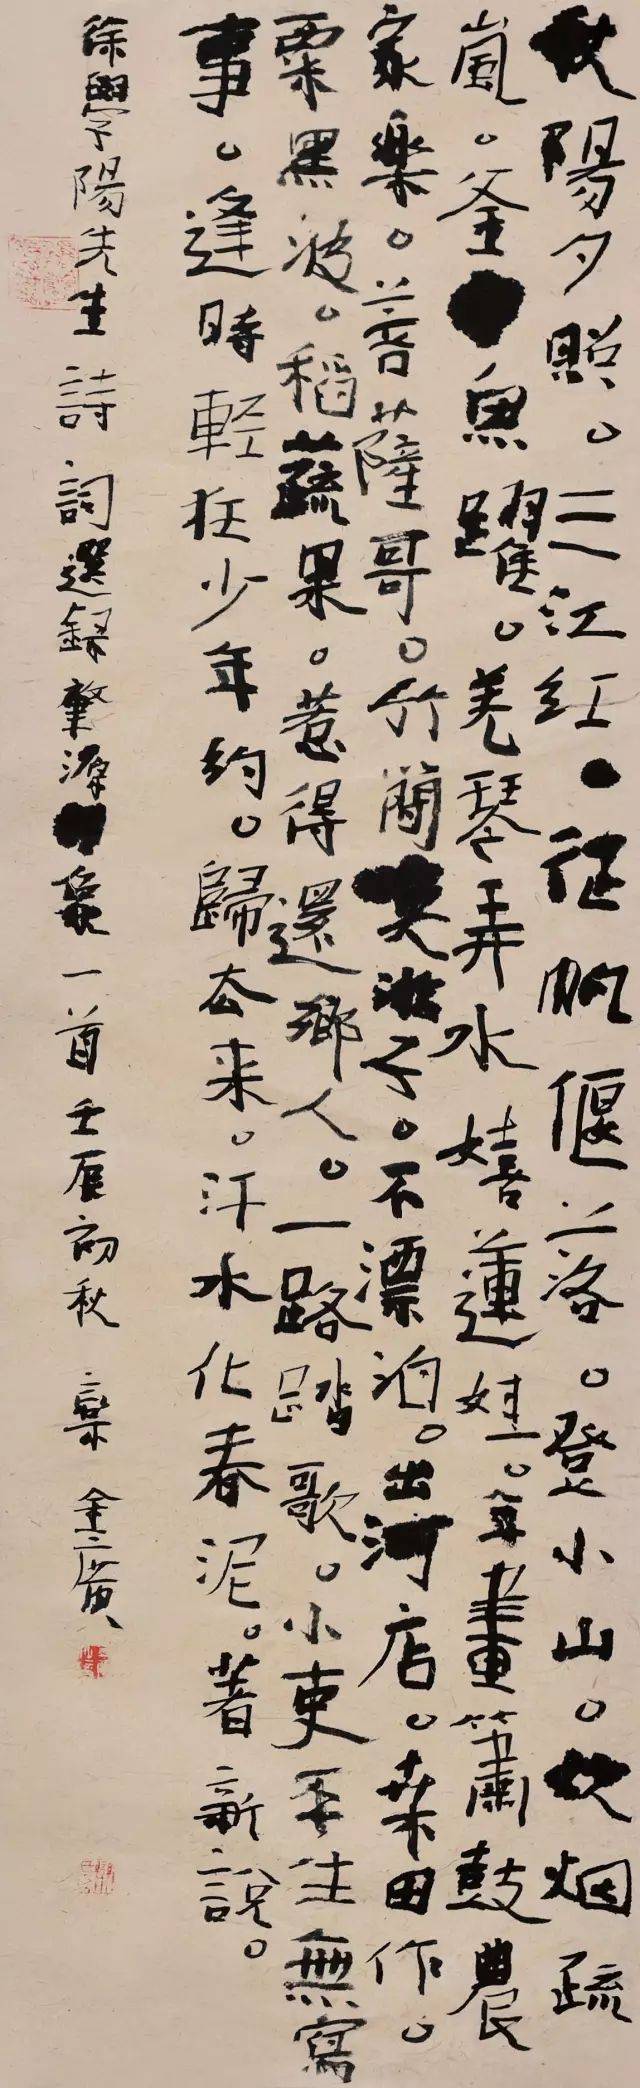 秋陽夕照。三江紅。征帆偃落。登小山。炊烟疏
嵐。釜魚躍。羌琴弄水嬉蓮娃。年畫簫鼓農
家樂。菩薩哥。竹蘭笑游子。不漂泊。出河店。桑田作。
粟黑波。稻蔬果。惹得還鄉人。一路踏歌。小吏平生無寫
事。逢時輕狂少年約。歸去来。汗水化春泥。著新說。
徐學陽先生詩詞選録肇源一首壬辰初秋 金廣